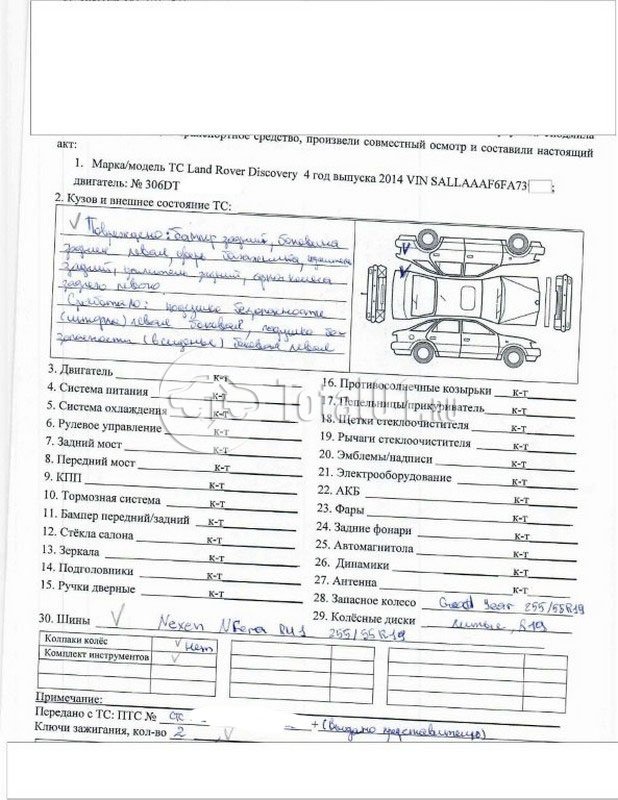 транспортное средство, произвели совместный осмотр и составили настоящий
акт:
1. Марка/модель ТС Land Rover Discovery 4 год выпуска 2014 VIN SALLAAAF6FA73 ;
двигатель: № 306DT
2. Кузов и внешнее состояние ТС:
Повреждено: бампер задний, боковина
задняя левая, арка
задний, усилитель задний, арка колеса
заднего левого
Сработало: подушка безопасности
(шторка) левая боковая, подушка без
опасности (в сиденье) боковая левая
3. Двигатель к-т
4. Система питания к-т
5. Система охлаждения к-т
6. Рулевое управление к-т
7. Задний мост к-т
8. Передний мост к-т
9. КПП к-т
10. Тормозная система к-т
11. Бампер передний/задний к-т
12. Стёкла салона к-т
13. Зеркала к-т
14. Подголовники к-т
15. Ручки дверные к-т
16. Противосолнечные козырьки к-т
17. Пепельницы/прикуриватель к-т
18. Щетки стеклоочистителя к-т
19. Рычаги стеклоочистителя к-т
20. Эмблемы/надписи к-т
21. Электрооборудование к-т
22. АКБ к-т
23. Фары к-т
24. Задние фонари к-т
25. Автомагнитола к-т
26. Динамики к-т
27. Антенна к-т
28. Запасное колесо Good Year 255/55R19
29. Колёсные диски литые, R19
30. Шины Nexen NFera RU1 255/55R19
Колпаки колёс нет
Комплект инструментов
Примечание:
Передано с ТС: ПТС № СТС +(выдано представителю)
Ключи зажигания, кол-во 2
Total01.ru